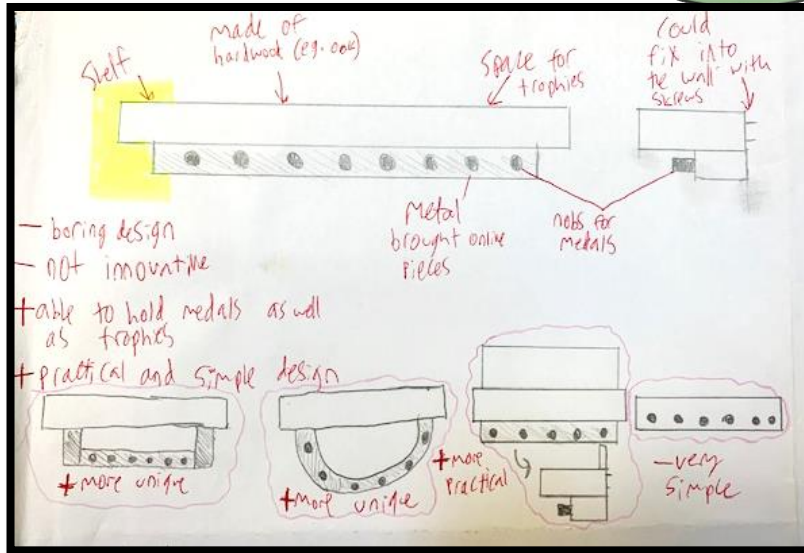 Shelf
made of
hardwook (eg. oak)
Space for
trophies
Could
fix into
the wall with
skrews
Metal
brought online
pieces
nobs for
medals
- boring design
- not innovative
+ able to hold medals as well
as trophies
+ practical and simple design
+ more unique
+ more unique
+ more
practical
- very
simple